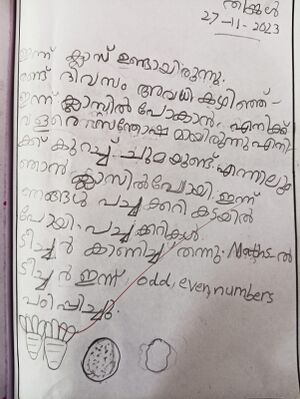 തിങ്കൾ
27-11-2023
ഇന്ന് ക്ലാസ് ഉണ്ടായിരുന്നു.
രണ്ട് ദിവസം അവധി കഴിഞ്ഞ്-
ഇന്ന് ക്ലാസ്സിൽ പോകാൻ. എനിക്ക്
വളരെ സന്തോഷ മായിരുന്നു എനി-
ക്ക് കുറച്ച് ചുമയുണ്ട്. എന്നാലും
ഞാൻ ക്ലാസിൽപോയി. ഇന്ന്
ഞങ്ങൾ പച്ചക്കറി കടയിൽ
പോയി. പച്ചക്കറികൾ
ടീച്ചർ കാണിച്ച് തന്നു. Maths-ൽ
ടീച്ചർ ഇന്ന് odd, even, numbers
പഠിപ്പിച്ചു.